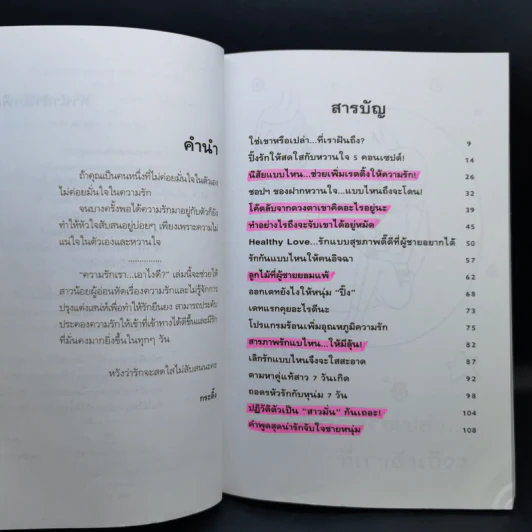 คำนำ
ถ้าคุณเป็นคนหนึ่งที่ไม่ค่อยมั่นใจในตัวเอง
ไม่ค่อยมั่นใจในความรัก
จนบางครั้งพอได้ความรักมาอยู่กับตัวก็ยัง
ทำให้หัวใจสับสนอยู่บ่อยๆ เพียงเพราะความไม่
แน่ใจในตัวเองและหวานใจ
..............
"ความรักเรา...เอาไงดี?" เล่มนี้จะช่วยให้
สาวน้อยผู้อ่อนหัดเรื่องความรักและไม่รู้จักการ
ปรุงแต่งเสน่ห์เพื่อทำให้รักยืนยง สามารถประคับ
ประคองความรักให้เข้าที่เข้าทางได้ดีขึ้นและมีรัก
ที่มั่นคงมากยิ่งขึ้นในทุกๆ วัน
หวังว่ารักจะสดใสไม่สับสนนะคะ
กระดิ่ง
สารบัญ
ใช่เขาหรือเปล่า...ที่เราฝันถึง? 9
ปิ๊งรักให้สดใสกับหวานใจ 5 คอนเซปต์! 14
นิสัยแบบไหน...ช่วยเพิ่มเรตติ้งให้ความรัก! 26
ชอปฯ ของฝากหวานใจ...แบบไหนถึงจะโดน! 32
โค้ดลับจากดวงตาเขาคิดอะไรอยู่นะ 39
ทำอย่างไรถึงจะจับเขาได้อยู่หมัด 45
Healthy Love...รักแบบสุขภาพดี๊ดีที่ผู้ชายอยากได้ 50
รักกันแบบไหนให้คนอิจฉา 57
ลูกไม้ที่ผู้ชายยอมแพ้ 62
ออกเดทยังไงให้หนุ่ม "ปิ๊ง" 67
เดทแรกคุยอะไรดีนะ 72
โปรแกรมร้อนเพิ่มอุณหภูมิความรัก 75
สารภาพรักแบบไหน...ให้มีลุ้น! 82
เลิกรักแบบไหนจึงจะใสสะอาด 87
ตามหาคู่แท้สาว 7 วันเกิด 92
ถอดรหัวรักกับหนุ่ม 7 วัน 98
ปฏิวัติตัวเป็น "สาวมั่น" กันเถอะ! 104
คำพูดสุดน่ารักจับใจชายหนุ่ม 108